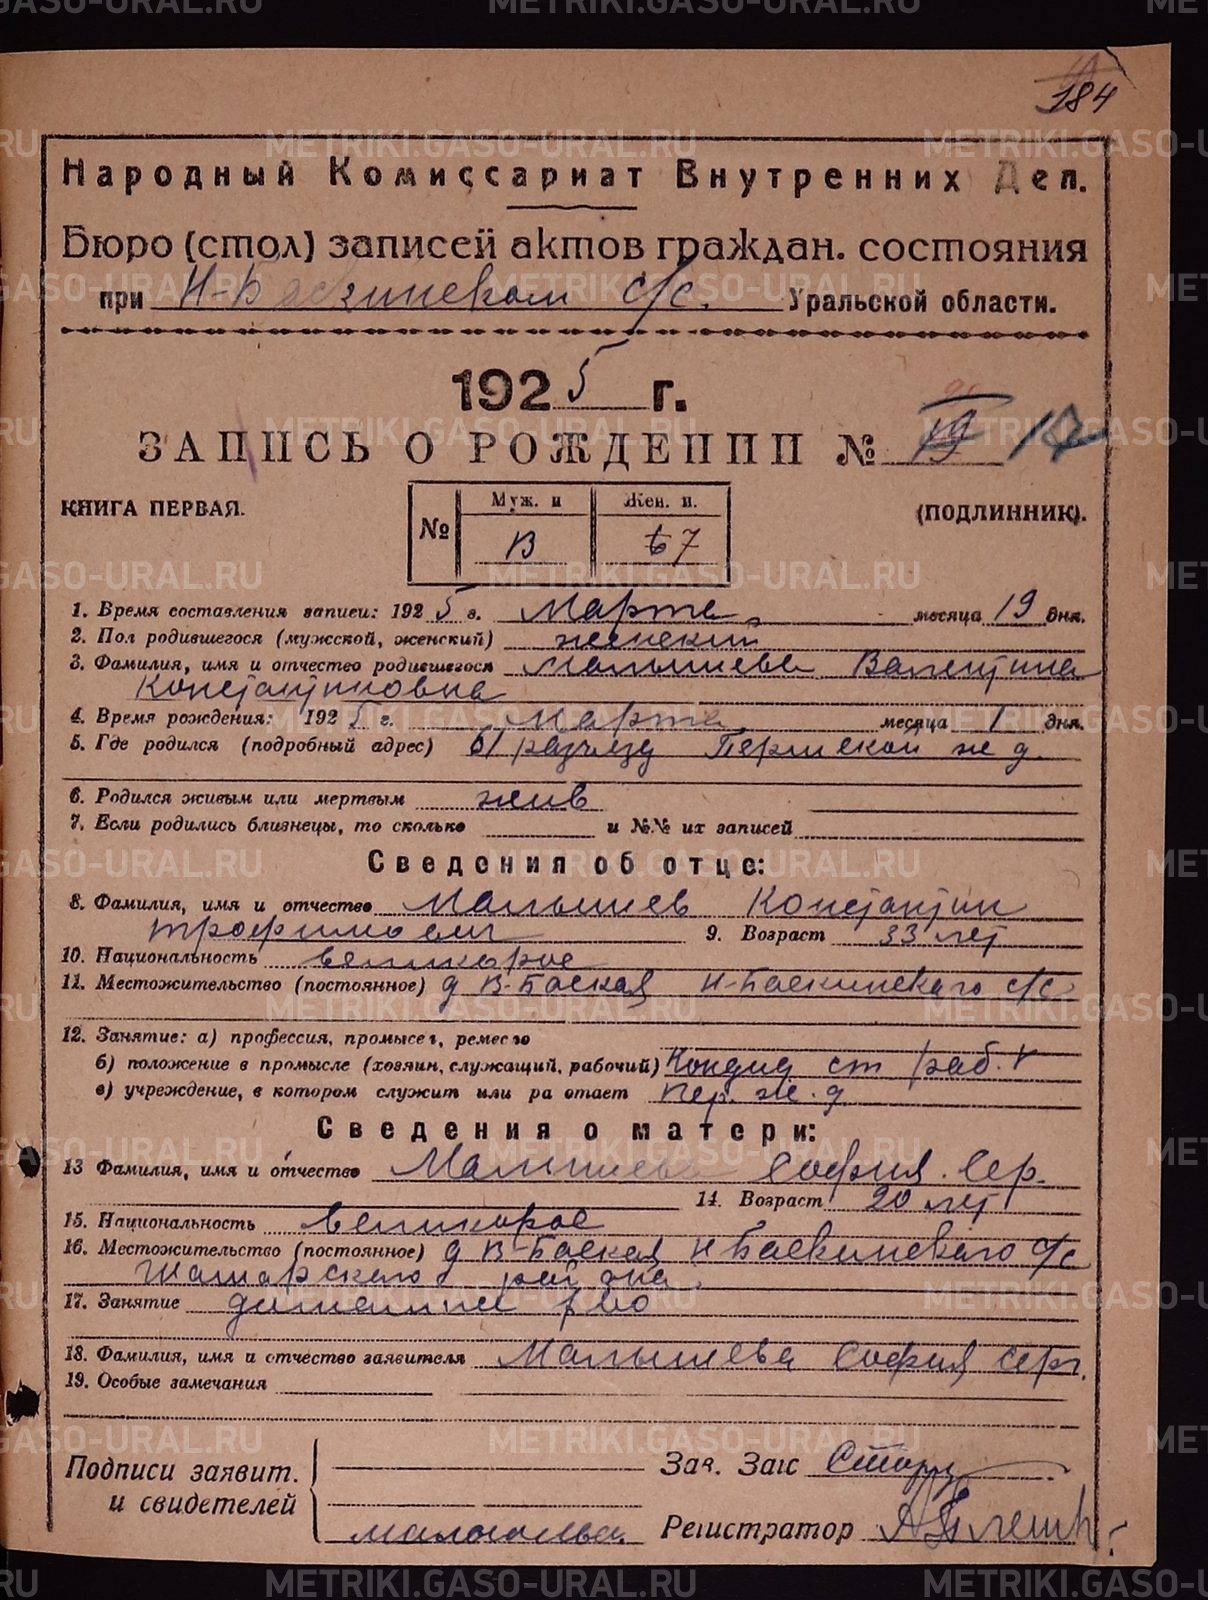 184
Народный Комиссариат Внутренних Дел.
Бюро (стол) записей актов граждан. состояния
при Н-Баскинском с/с. Уральской области.
1925 г.
ЗАПИСЬ О РОЖДЕНИИ № 19 17
КНИГА ПЕРВАЯ. (ПОДЛИННИК).
№ Муж. п Жен. п.
13 6 7
1. Время составления записи: 1925 г. Марта месяца 19 дня.
2. Пол родившегося (мужской, женский) женский
3. Фамилия, имя и отчество родившегося Малышева Валентина
Константиновна
4. Время рождения: 1925 г. Марта месяца 1 дня.
5. Где родился (подробный адрес) 61 разъезд Пермской ж д.
6. Родился живым или мертвым жив
7. Если родились близнецы, то сколько и №№ их записей
Сведения об отце:
8. Фамилия, имя и отчество Малышев Константин
Трофимович 9. Возраст 33 лет
10. Национальность великорос
11. Местожительство (постоянное) д В-Баская Н-Баскинскаго с/с
12. Занятие: а) профессия, промысел, ремесло
б) положение в промысле (хозяин, служащий, рабочий) Кондид ст раб.
в) учреждение, в котором служит или ра отает Пер. ж. д
Сведения о матери:
13 Фамилия, имя и отчество Малышева София Сер.
14. Возраст 20 лет
15. Национальность великорос
16. Местожительство (постоянное) д В-Баская Н Баскинскаго с/с
Шамарского района.
17. Занятие домашнее
18. Фамилия, имя и отчество заявителя Малышева София Серг.
19. Особые замечания
Подписи заявит. Зав. Загс
и свидетелей
Малышева. Регистратор
METRIKI.GASO-URAL.RU